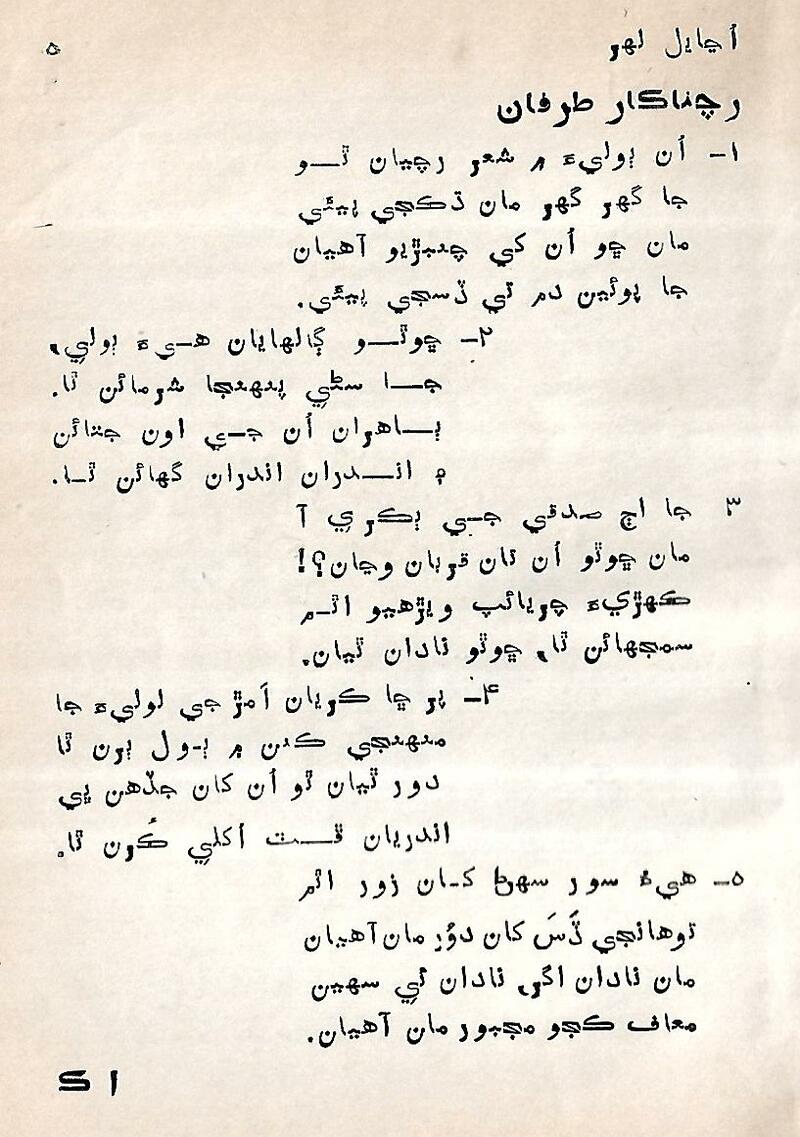 اُڃايل لهر
۵
رچناڪار طرفان
۱– اُن ٻوليءَ ۾ شعر رچيان ٿو
جا گهر گهر مان ڌڪجي پيئي
مان ڇو اُن کي چنبڙيو آهيان
جا پوئين دم تي ڏسجي پيئي.
۲– ڇوٿو ڳالهايان هيءَ ٻولي،
جا سڻي پنهنجا شرمائن ٿا.
ٻاهران اُن جي اون جتائن
۽ اندران اندران گهائن ٿا.
۳ جا اڄ صدقي جي ٻڪري آ
مان ڇوٿو اُن تان قربان وڃان؟!
ڪهڙيءَ چريائپ ويڙهيو اٿم
سمجهائن ٿا، ڇوٿو نادان ٿيان.
۴– پر ڇا ڪريان اَمڙ جي لوليءَ جا
منهنجي ڪنن ۾ ٻول ٻرن ٿا
دور ٿيان ٿو اُن کان جڏهن ڀي
اندريان ڦٽ اُکلي ڪُرن ٿا.
۵– هيءُ سور سهڻ کان زور اٿم
توهانجي ڏَسَ کان دوُر مان آهيان
مان نادان اگر، نادان ئي سهين
معاف ڪجو مجبور مان آهيان.
S I